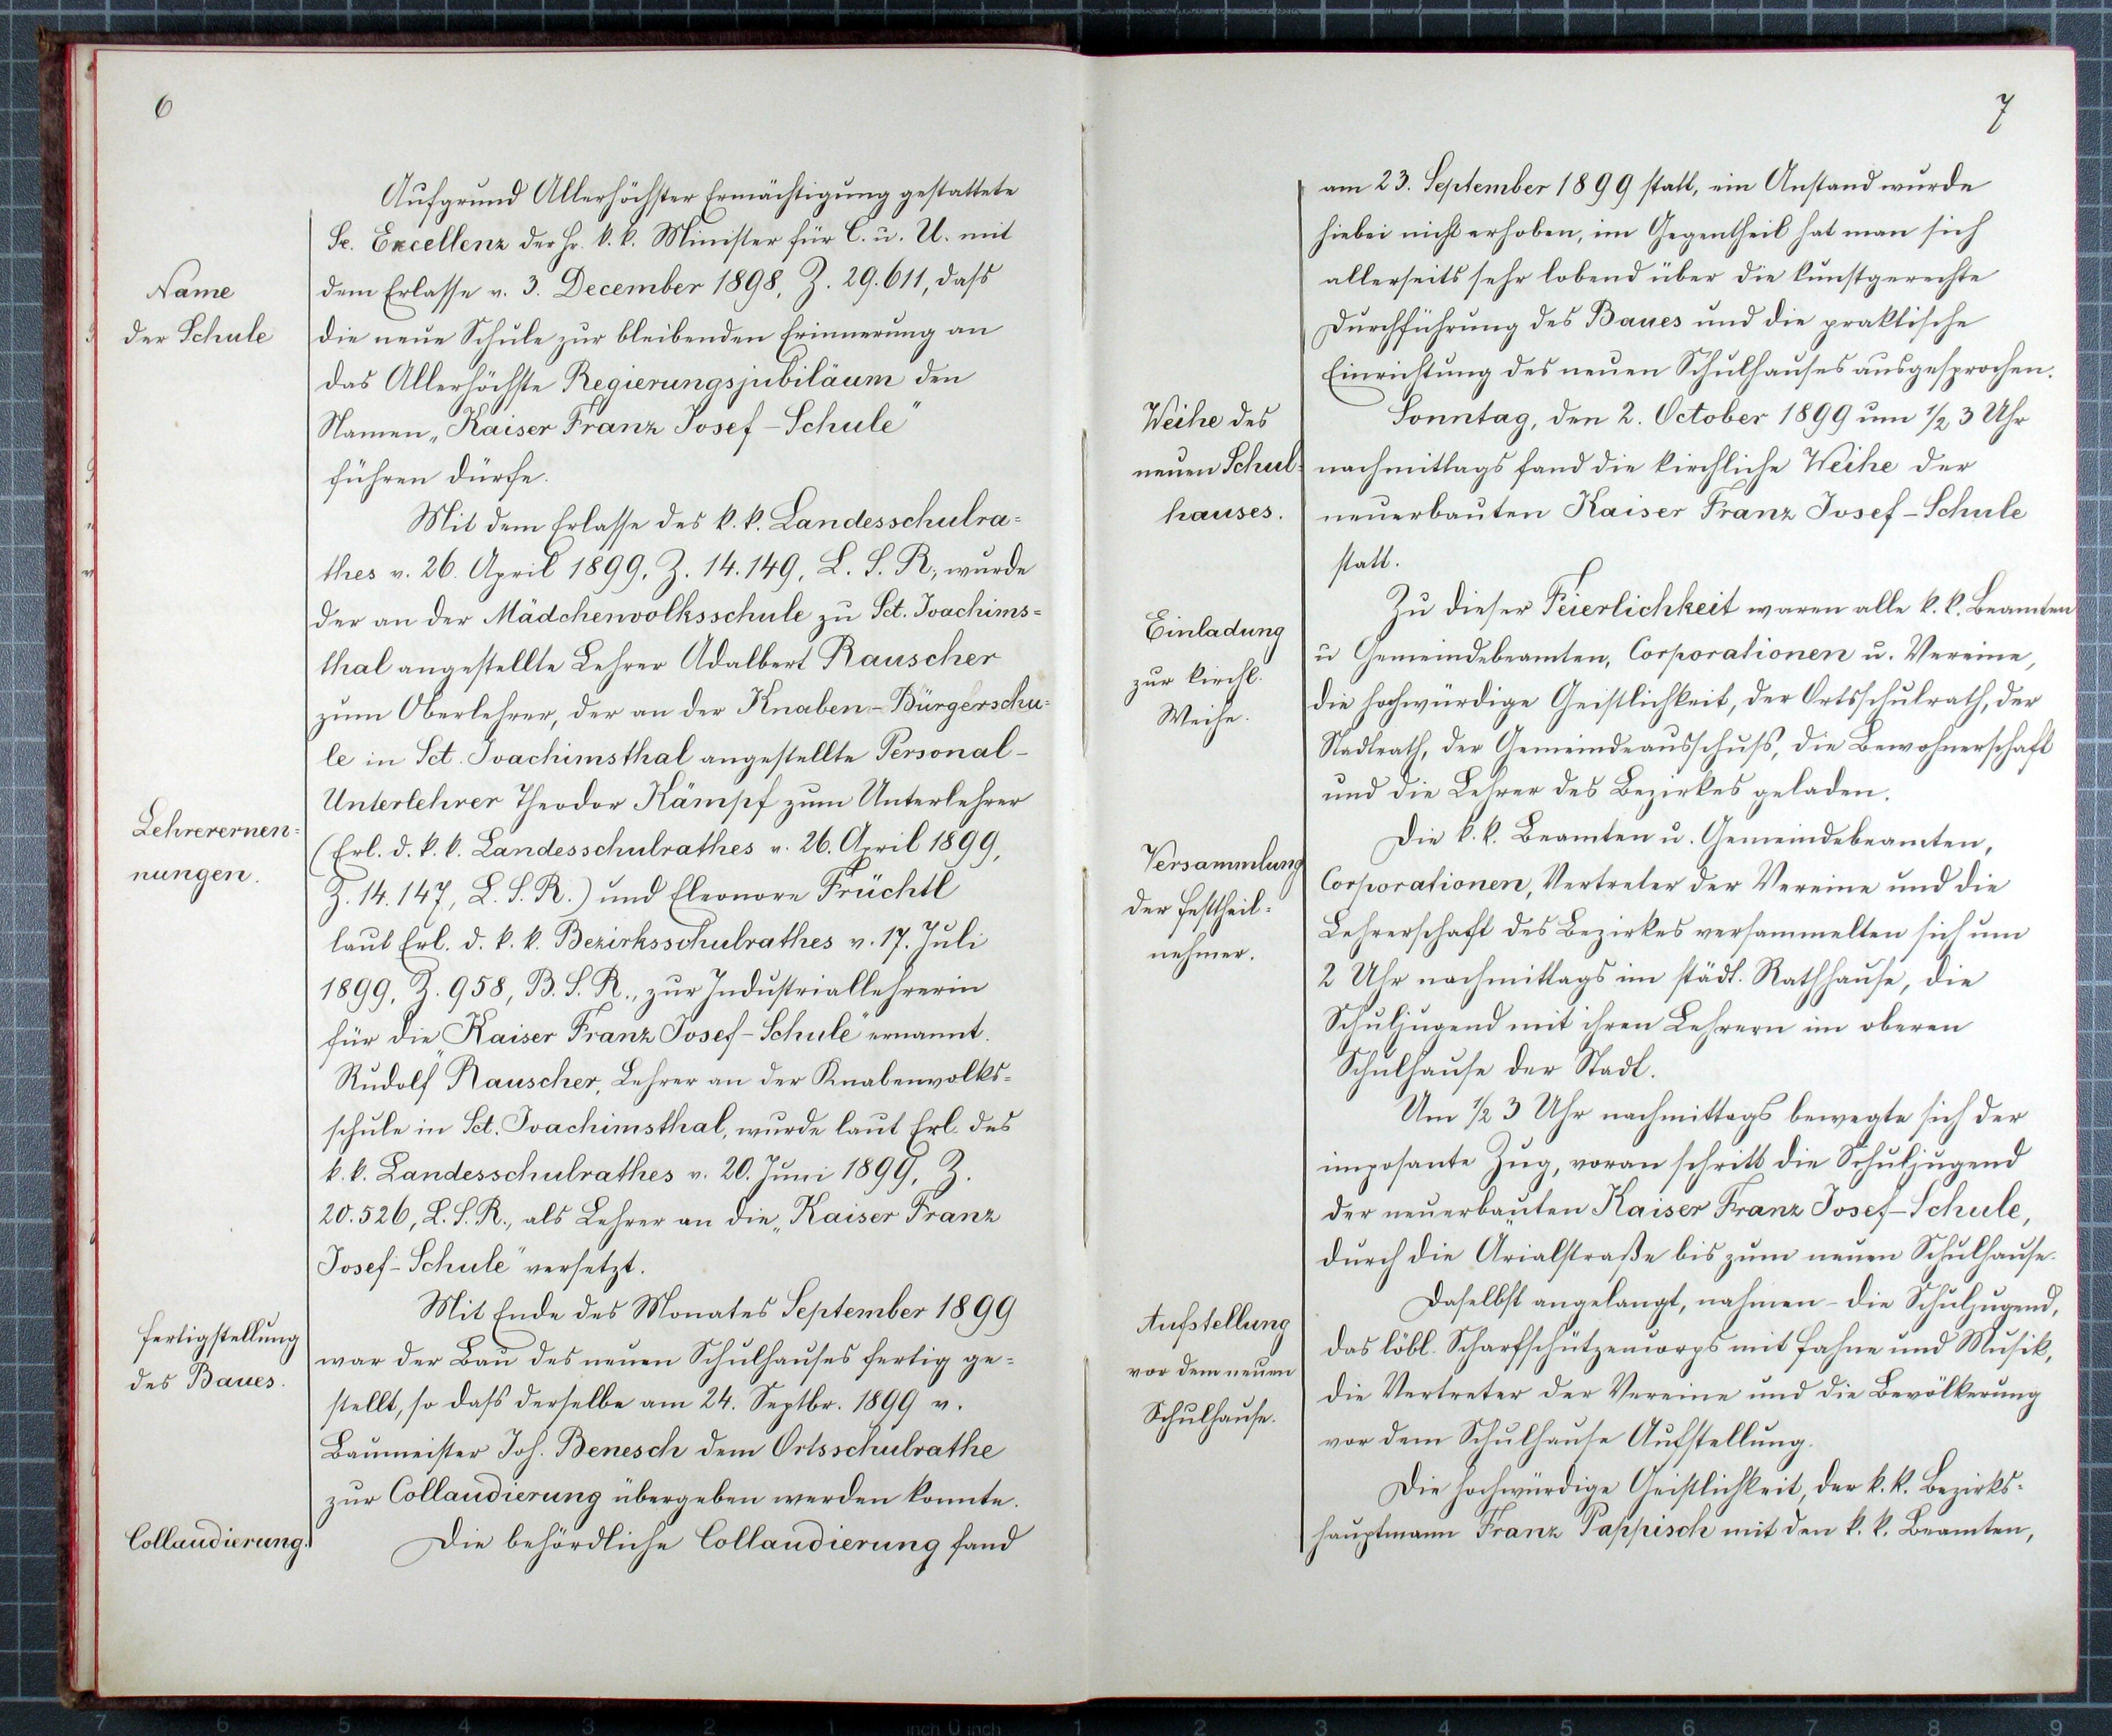 6
Aufgrund Allerhöchster Ermächtigung gestattete
Se. Excellenz der Hr. k. k. Minister für C. u. U. mit
Name
dem Erlasse v. 3. December 1898, Z. 29.611, dass
der Schule
die neue Schule zur bleibenden Erinnerung an
das Allerhöchste Regierungsjubiläum den
Namen „Kaiser Franz Josef-Schule"
führen dürfe.
Mit dem Erlasse des k. k. Landesschulra=
thes v. 26. April 1899, Z. 14.149, L. S. R., wurde
der an der Mädchenvolksschule zu Sct. Joachims=
thal angestellte Lehrer Adalbert Rauscher
zum Oberlehrer, der an der Knaben-Bürgerschu=
le in Sct. Joachimsthal angestellte Personal-
Unterlehrer Theodor Kämpf zum Unterlehrer
Lehrerernen=
(Erl. d. k. k. Landesschulrathes v. 26. April 1899,
nungen.
Z. 14.147, L. S. R.) und Eleonore Früchtl
laut Erl. d. k. k. Bezirksschulrathes v. 17. Juli
1899, Z. 958, B. S. R., zur Industriallehrerin
für die „Kaiser Franz Josef-Schule" ernannt.
Rudolf Rauscher, Lehrer an der Knabenvolks=
schule in Sct. Joachimsthal, wurde laut Erl. des
k. k. Landesschulrathes v. 20. Juni 1899, Z.
20.526, L. S. R., als Lehrer an die „Kaiser Franz
Josef-Schule" versetzt.
Mit Ende des Monates September 1899
Fertigstellung
war der Bau des neuen Schulhauses fertig ge=
des Baues.
stellt, so dass derselbe am 24. Septbr. 1899 v.
Baumeister Joh. Benesch dem Ortsschulrathe
zur Collaudierung übergeben werden konnte.
Collaudierung.
Die behördliche Collaudierung fand
7
am 23. September 1899 statt, ein Anstand wurde
hiebei nicht erhoben, im Gegentheil hat man sich
allerseits sehr lobend über die kunstgerechte
Durchführung des Baues und die praktische
Einrichtung des neuen Schulhauses ausgesprochen.
Weihe des
Sonntag, den 2. October 1899 um ½ 3 Uhr
neuen Schul=
nachmittags fand die kirchliche Weihe der
hauses.
neuerbauten Kaiser Franz Josef-Schule
statt.
Zu dieser Feierlichkeit waren alle k. k. Beamten
Einladung
u Gemeindebeamten, Corporationen u. Vereine,
zur kirchl.
die hochwürdige Geistlichkeit, der Ortsschulrath, der
Weihe.
Stadtrath, der Gemeindeausschuss, die Bewohnerschaft
und die Lehrer des Bezirkes geladen.
Die k. k. Beamten u. Gemeindebeamten,
Versammlung
Corporationen, Vertreter der Vereine und die
der Festtheil=
Lehrerschaft des Bezirkes versammelten sich um
nehmer.
2 Uhr nachmittags im städt. Rathhause, die
Schuljugend mit ihren Lehrern im oberen
Schulhause der Stadt.
Um ½ 3 Uhr nachmittags bewegte sich der
imposante Zug, voran schritt die Schuljugend
der neuerbauten Kaiser Franz Josef-Schule,
durch die Ärialstraße bis zum neuen Schulhause.
Daselbst angelangt, nahmen - die Schuljugend,
Aufstellung
das löbl. Scharfschützencorps mit Fahne und Musik,
vor dem neuen
die Vertreter der Vereine und die Bevölkerung
Schulhause.
vor dem Schulhause Aufstellung.
Die hochwürdige Geistlichkeit, der k. k. Bezirks=
hauptmann Franz Pappisch mit den k. k. Beamten,
7 6 5 4 3 2 1 inch 0 inch 1 2 3 4 5 6 7 8 9